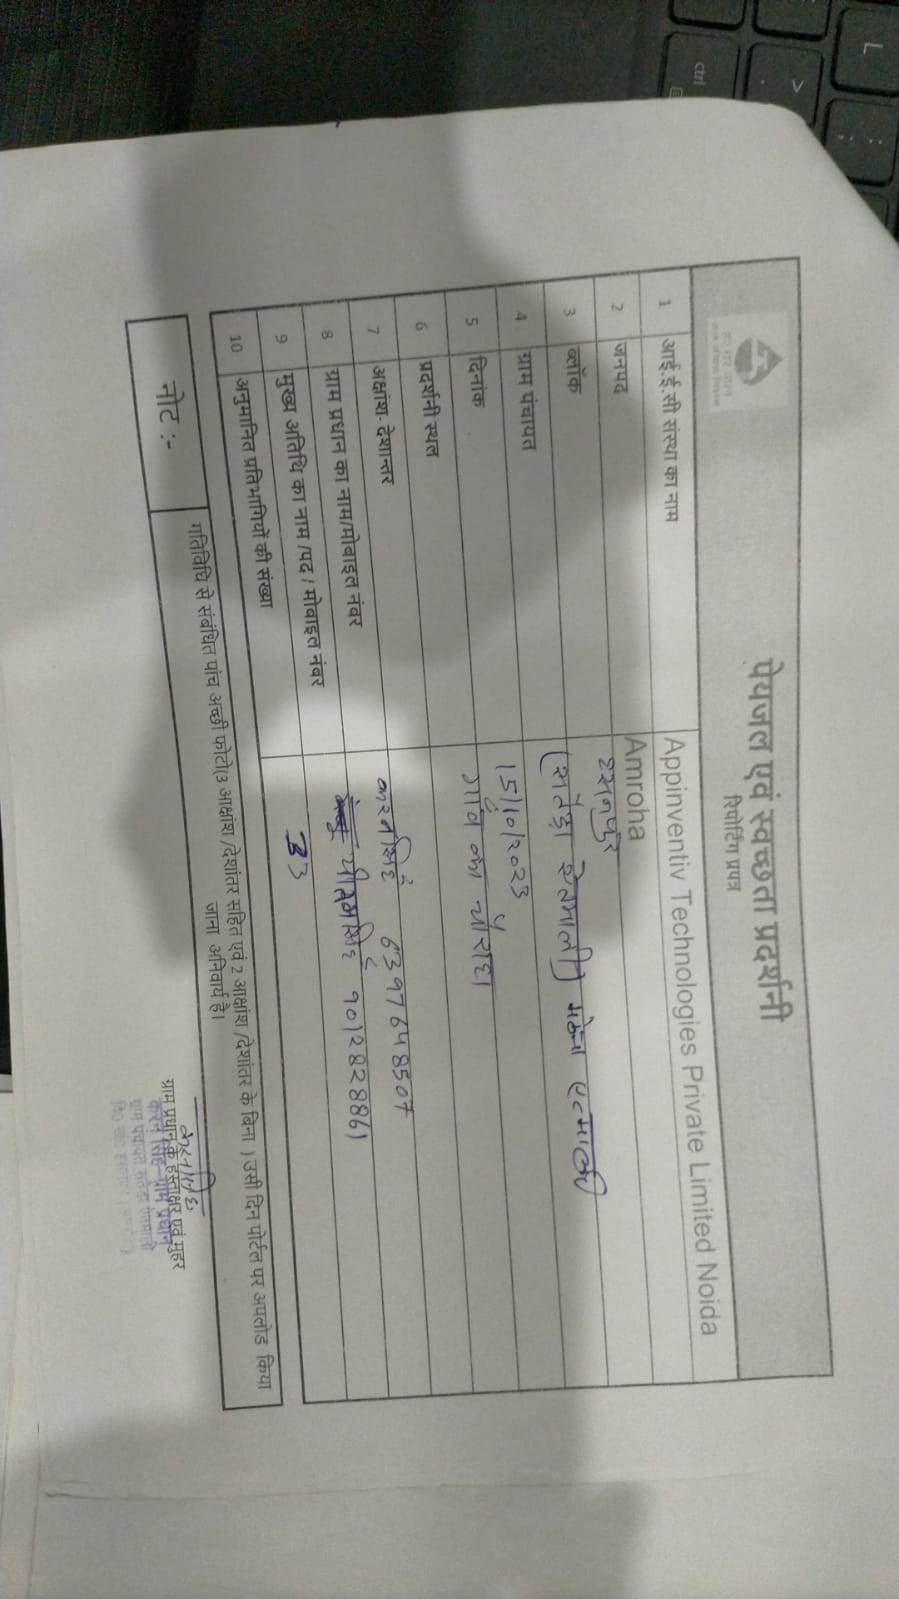 पेयजल एवं स्वच्छता प्रदर्शनी
रिपोर्टिंग प्रपत्र
1 आई.ई.सी संस्था का नाम Appinventiv Technologies Private Limited Noida
2 जनपद Amroha
3 ब्लॉक हसनपुर
4 ग्राम पंचायत (सतेड़ा
5 दिनांक 15/10/2023
6 प्रदर्शनी स्थल गांव का चौराहा
7 अक्षांश-देशान्तर
8 ग्राम प्रधान का नाम/मोबाइल नंबर करन सिंह 6397648507
9 मुख्य अतिथि का नाम /पद / मोबाइल नंबर 9012828861
10 अनुमानित प्रतिभागियों की संख्या 33
नोट :- गतिविधि से संबंधित पांच अच्छी फोटो(3 आक्षांश /देशांतर सहित एवं 2 आक्षांश /देशांतर के बिना ) उसी दिन पोर्टल पर अपलोड किया
जाना अनिवार्य है।
ग्राम प्रधान के हस्ताक्षर एवं मुहर
करन सिंह-ग्राम प्रधान